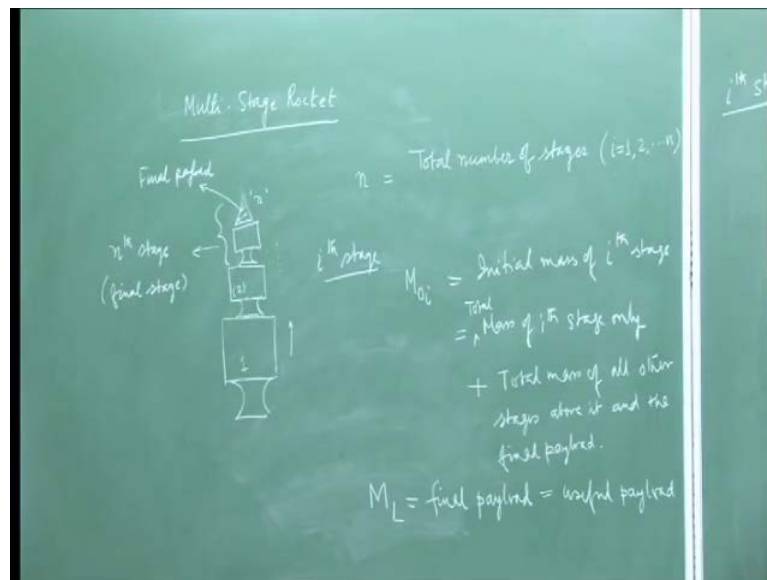 Multi-Stage Rocket
Final payload
'n'
nth stage
(final stage)
(2)
1
n = Total number of stages (i=1,2,...n)
ith stage
M0i = Initial mass of ith stage
= Total Mass of ith stage only
+ Total mass of all other
stages above it and the
final payload.
ML = final payload = useful payload
ith st